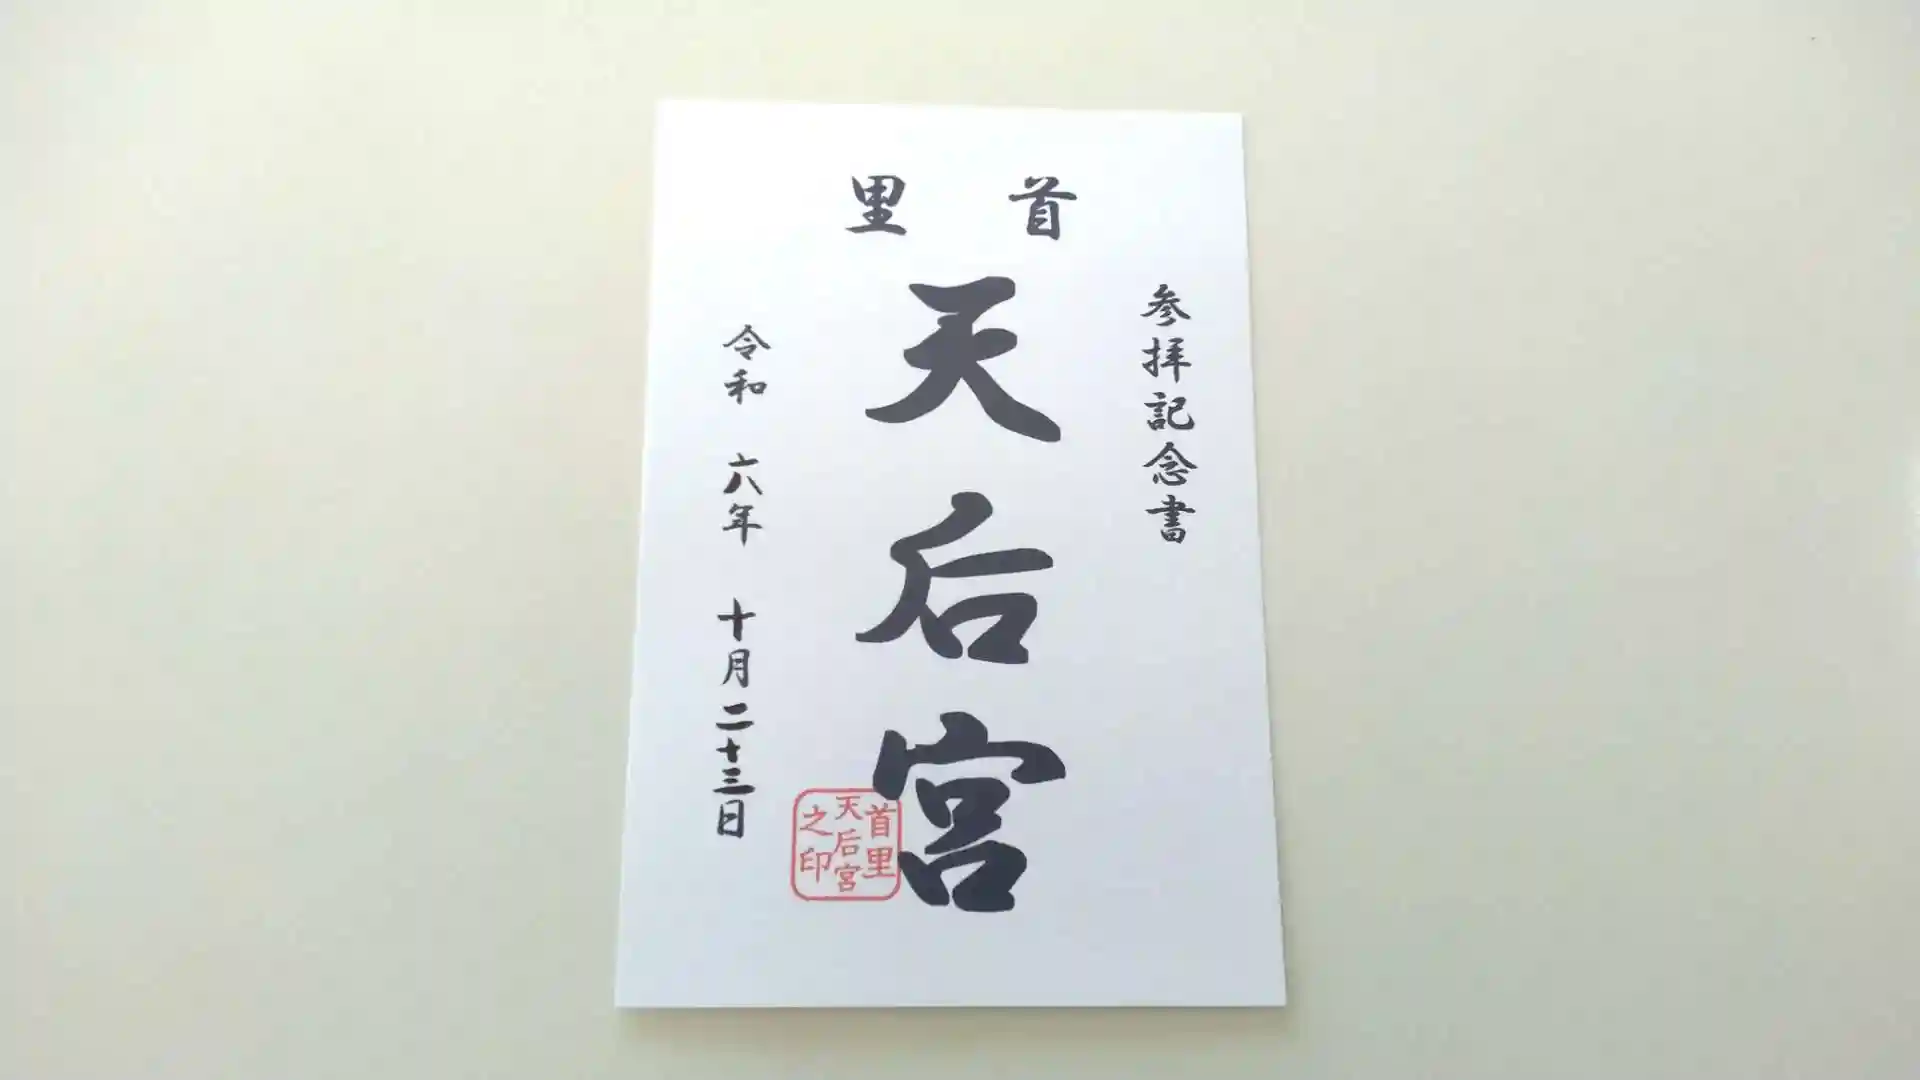 首里
参拝記念書
天后宮
令和 六年 十月二十三日
首里
天后宮
之印